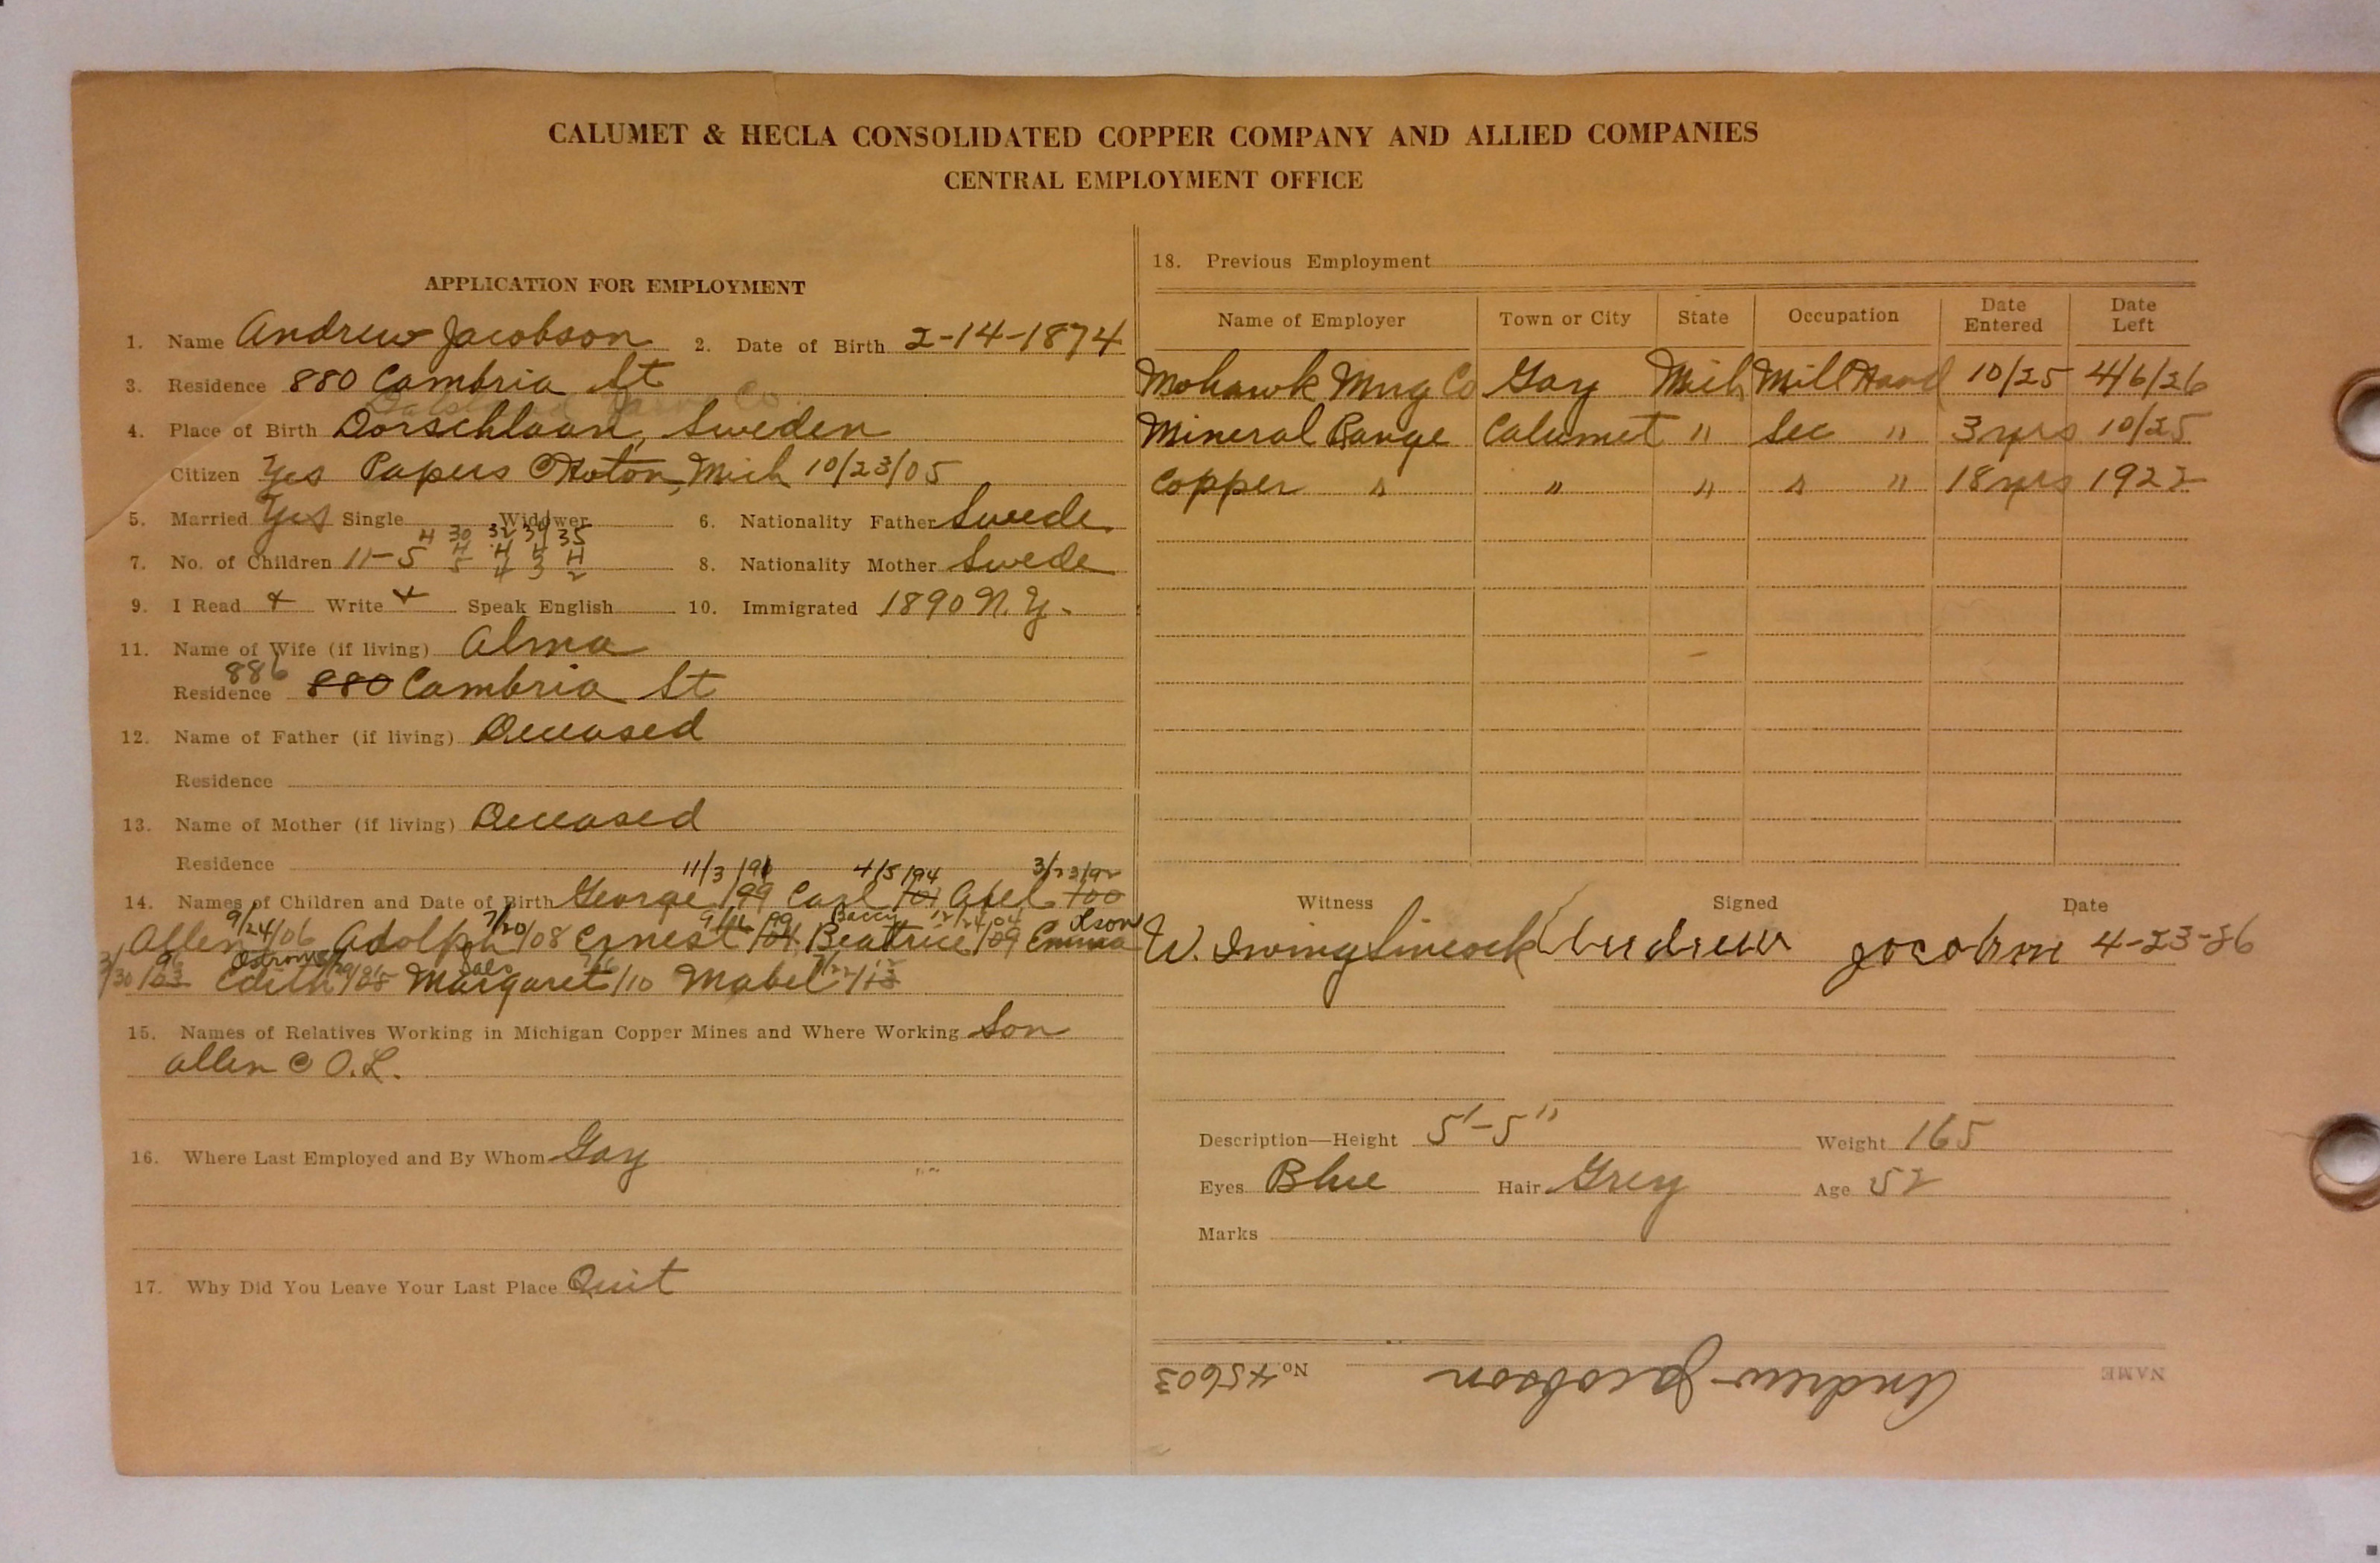 CALUMET & HECLA CONSOLIDATED COPPER COMPANY AND ALLIED COMPANIES
CENTRAL EMPLOYMENT OFFICE
APPLICATION FOR EMPLOYMENT
1. Name Andrew Jacobson 2. Date of Birth 2-14-1874
3. Residence 880 Cambria St
4. Place of Birth Dorschlaan, Sweden
Citizen Yes Papers @ Hoton, Mich 10/23/05
5. Married Yes Single Widower 6. Nationality Father Swede
30 32 34 35
7. No. of Children 11-5 8. Nationality Mother Swede
9. I Read + Write + Speak English 10. Immigrated 1890 N.Y.
11. Name of Wife (if living) Alma
886
Residence 880 Cambria St
12. Name of Father (if living) Deceased
Residence
13. Name of Mother (if living) Deceased
Residence
11/3/91 4/5/94 3/23/92
14. Names of Children and Date of Birth George /99 Carl /01 Abel /00
9/24 7/20
Allen /06 Adolph /08 Ernest Beatrice /09 Emma
Edith Margaret /10 Mabel /13
15. Names of Relatives Working in Michigan Copper Mines and Where Working Son
Allen @ O.L.
16. Where Last Employed and By Whom Gay
17. Why Did You Leave Your Last Place Quit
18. Previous Employment
Name of Employer Town or City State Occupation Date Entered Date Left
Mohawk Mng Co Gay Mich Mill Hand 10/25 4/6/26
Mineral Range Calumet " Sec " 3 yrs 10/25
Copper " " " " " 18 yrs 1922
Witness Signed Date
W. Irwing Sincock Andrew Jacobson 4-23-26
Description—Height 5'-5" Weight 165
Eyes Blue Hair Grey Age 52
Marks
NAME Andrew Jacobson No. 45603